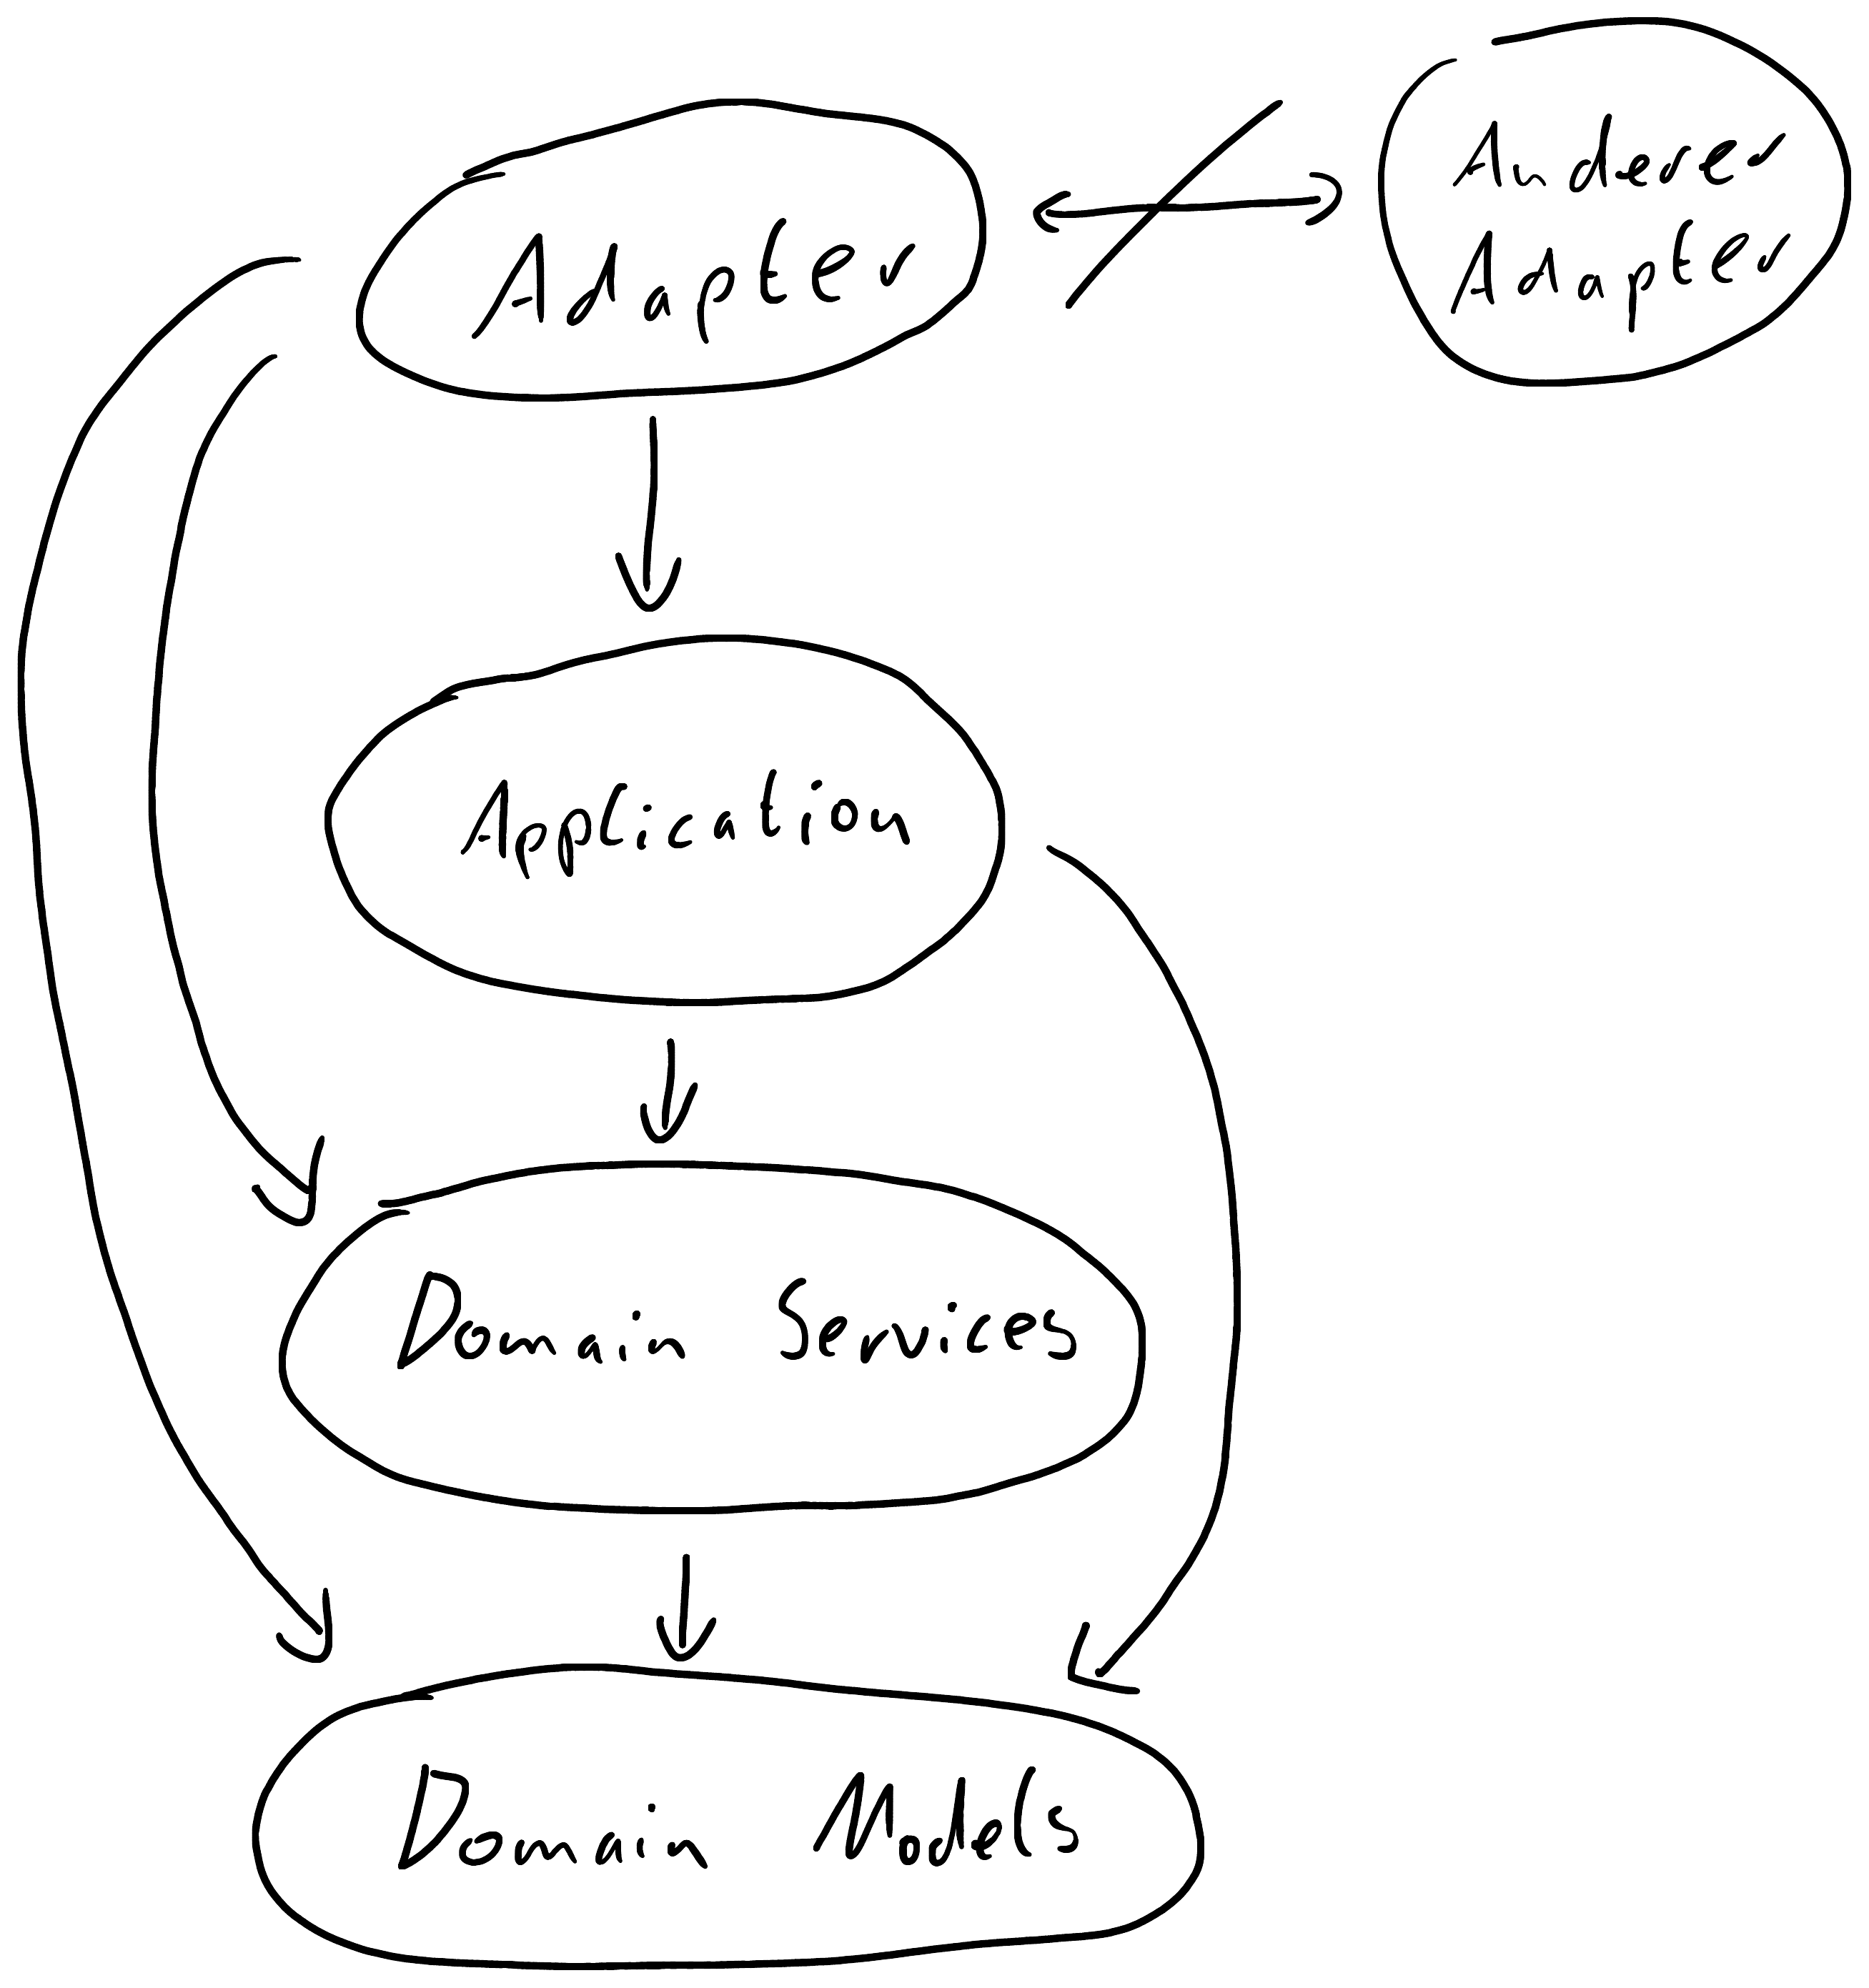 Anderer
Adapter
Adapter
Application
Domain Services
Domain Models